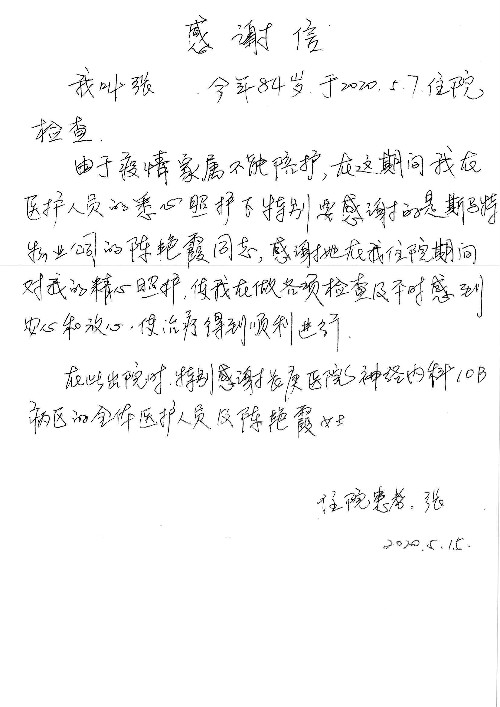 感谢信
我叫张 今年84岁.于2020.5.7住院
检查.
由于疫情家属不能陪护,在这期间我在
医护人员的悉心照护下特别要感谢的是斯马特
物业公司的陈艳霞同志,感谢她在我住院期间
对我的精心照护,使我在做各项检查及平时感到
安心和放心.使治疗得到顺利进行.
在此出院时.特别感谢长庚医院 神经内科10B
病区的全体医护人员及陈艳霞女士
住院患者.张
2020.5.15.